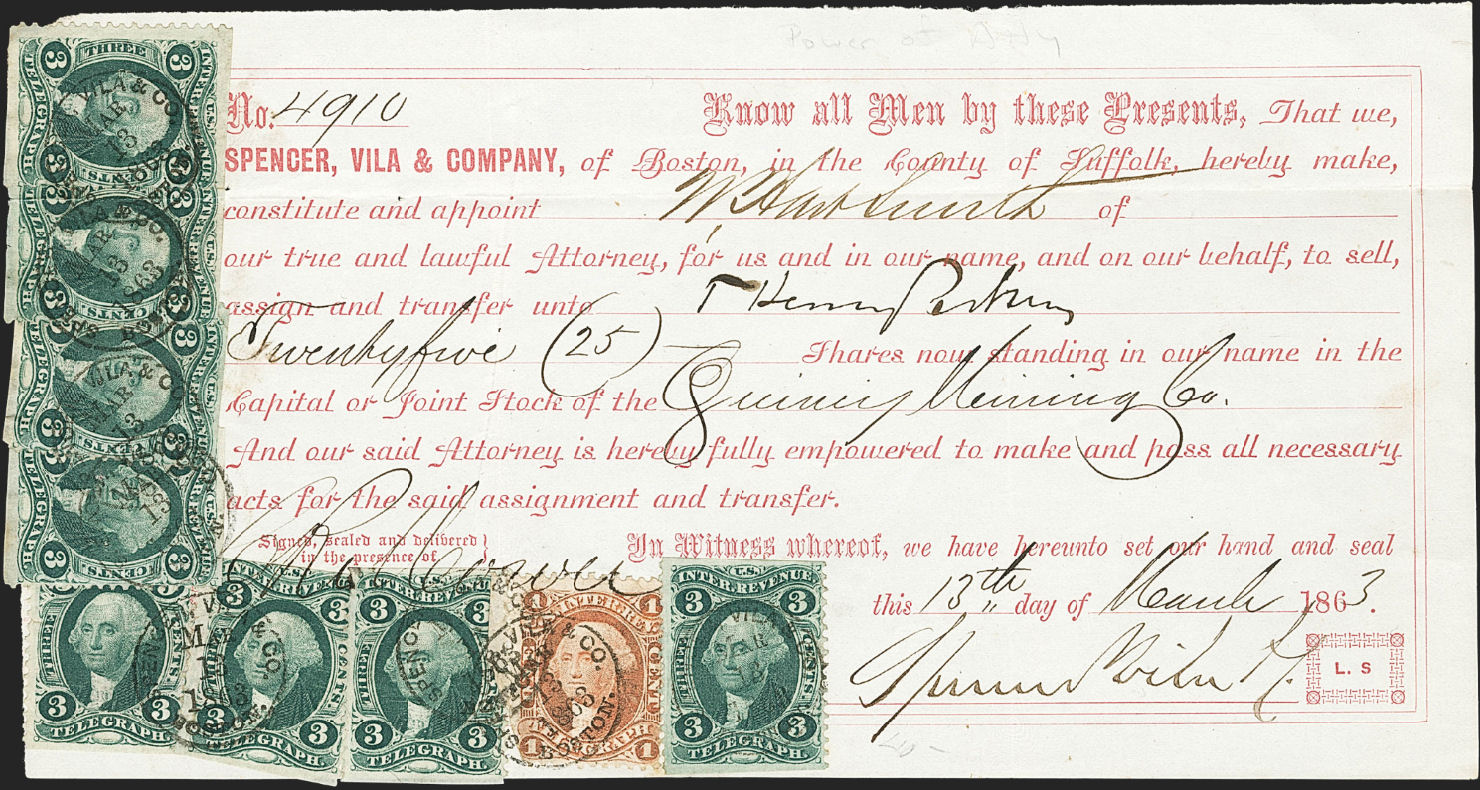 Power of Att'y
No. 4910 Know all Men by these Presents, That we,
SPENCER, VILA & COMPANY, of Boston, in the County of Suffolk, hereby make,
constitute and appoint W Hart Smith of
our true and lawful Attorney, for us and in our name, and on our behalf, to sell,
assign and transfer unto T Henry Perkins
Twentyfive (25) Shares now standing in our name in the
Capital or Joint Stock of the Quincy Mining Co.
And our said Attorney is hereby fully empowered to make and pass all necessary
acts for the said assignment and transfer.
Signed, sealed and delivered
in the presence of
In Witness whereof, we have hereunto set our hand and seal
this 13th day of March 1863.
Spencer Vila & Co.
L. S
3 THREE 3
INTER. REVENUE
U.S.
TELEGRAPH
3 CENTS 3
VILA & CO.
MAR
13
1863
BOSTON.
U.S.
INTER. REVENUE
3 3
THREE CENTS
3 3
TELEGRAPH.
1 1
1 TELEGRAPH 1
VILA & CO.
1863
BOSTON.
3 INTER. REVENUE 3
U.S.
THREE CENTS
3 3
TELEGRAPH.